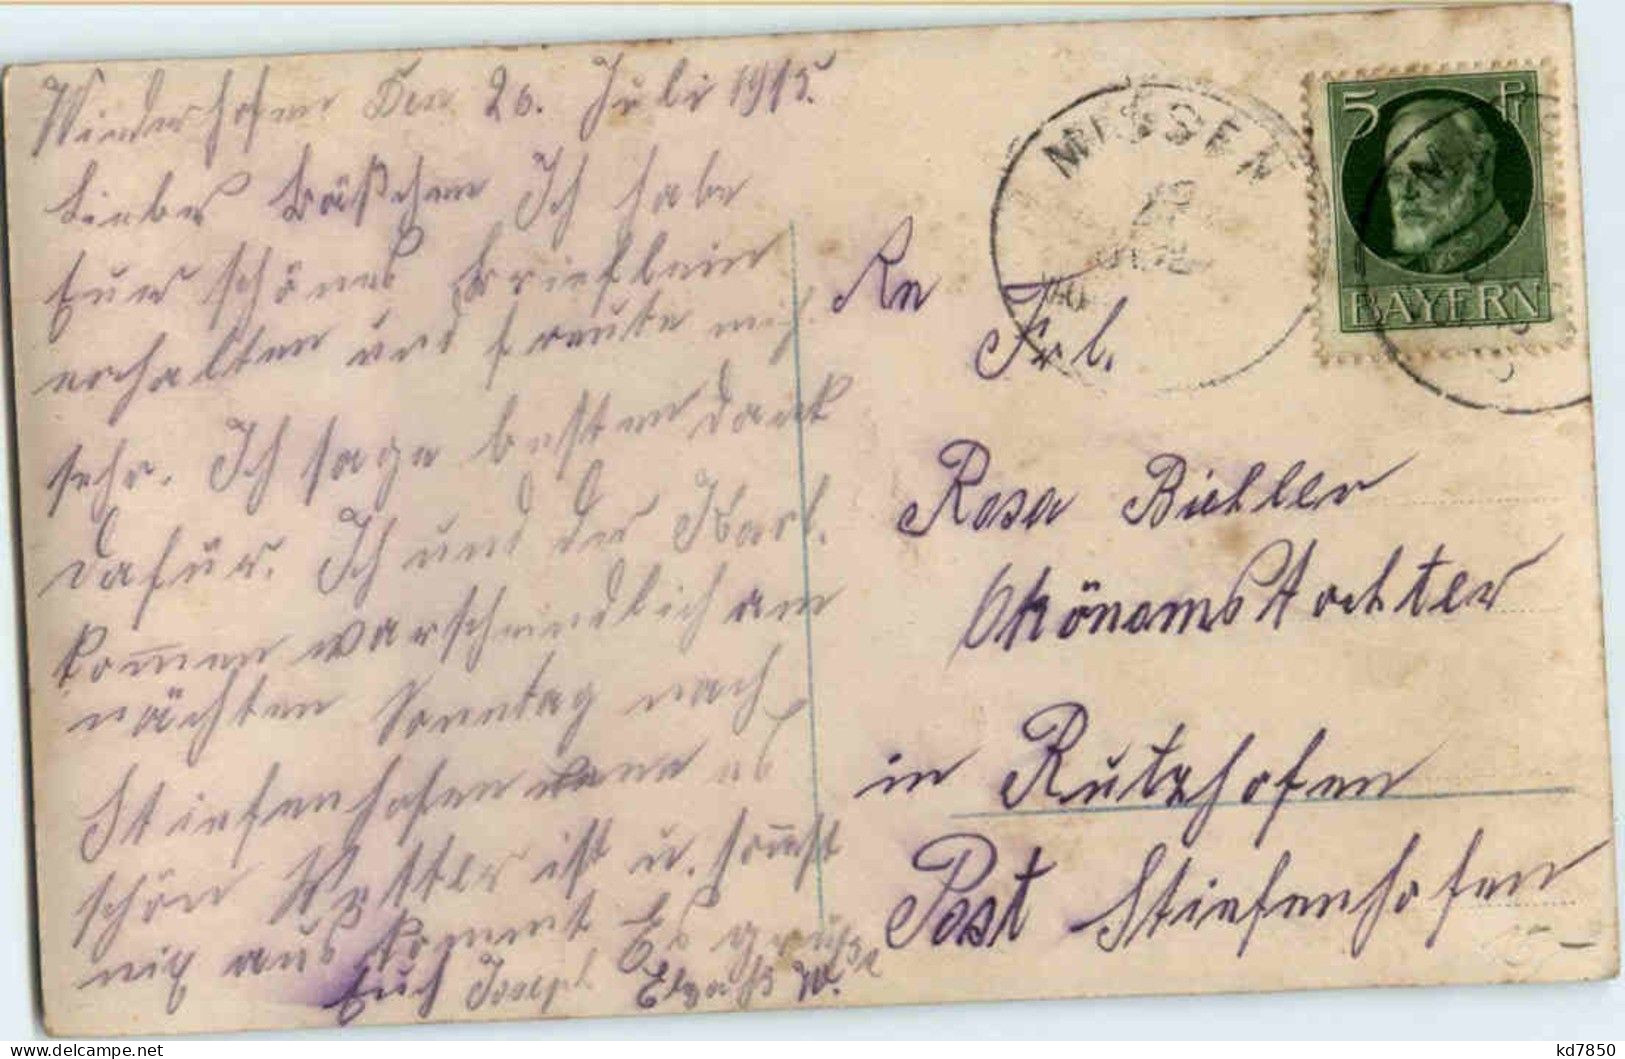 Wiederhofen Den 26. Juli 1915.
Liebes Bäßchen Ich habe
Euer schönes Brieflein
erhalten und freute mich
sehr. Ich sage besten Dank
dafür. Ich und der Karl.
kommen warscheindlich am
nächten Sonntag nach
Stiefenhofen wenn es
schön Wetter ist u. sonst
nix aus kommt Es grüßt
Euch Joseph W.
MISSEN
5 Pf
BAYERN
An
Frl.
Rosa Biehller
Ökönomstochter
in Rutzhofen
Post Stiefenhofen
15,-
kd7850